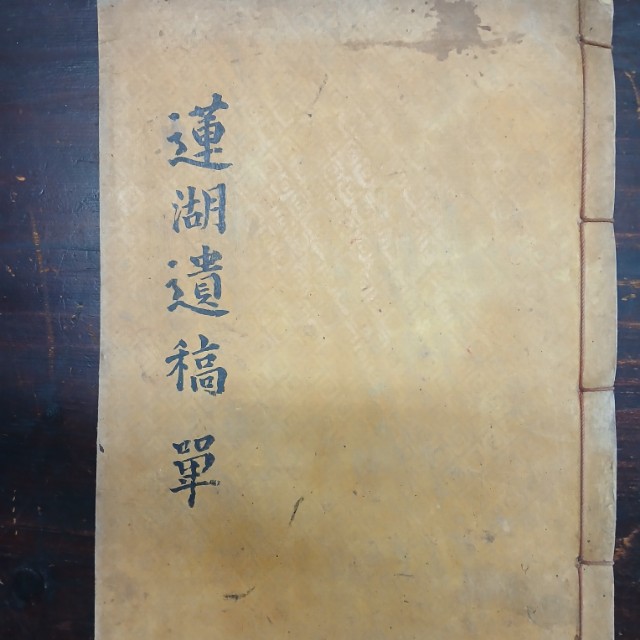 蓮湖遺稿 單